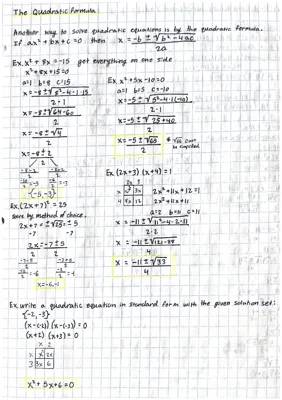 The Quadratic formula
Another way to solve quadratic equations is by the quadratic formula.
If ax² + bx + c = 0 then x = -b ± √b² - 4ac
2a
Ex. x² + 8x = -15 get everything on one side
x² + 8x + 15 = 0
a=1 b=8 c=15
x = -8 ± √8² - 4·1·15
2·1
x = -8 ± √64-60
2
x = -8 ± √4
2
x = -8 ± 2
2
-8+2 -8-2
2 2
-6/2 = -3 -10/2 = -5
{-5,-3}
Ex. x² + 5x - 10 = 0
a=1 b=5 c=-10
x = -5 ± √5² - 4·1·(-10)
2·1
x = -5 ± √25 + 40
2
x = -5 ± √65
2
* √65 can't be simplified
Ex. (2x + 7)² = 25
solve by method of choice.
2x + 7 = ±√25 = ± 5
-7 -7
2x = -7 ± 5
2 2
-7-5 -7+5
2 2
-12/2 = -6 -2/2 = -1
x = -6, -1
Ex. (2x + 3)(x + 4) = 1
2x 3
x 2x² 3x
4 8x 12
2x² + 11x + 12 = 1
2x² + 11x + 11
a=2 b=11 c=11
x = -11 ± √11² - 4·2·11
2·2
x = -11 ± √121 - 88
4
x = -11 ± √33
4
Ex. write a quadratic equation in standard form with the given solution set:
{-2, -3}
(x - (-2))(x - (-3)) = 0
(x + 2)(x + 3) = 0
x 2
x x² 2x
3 3x 6
x² + 5x + 6 = 0